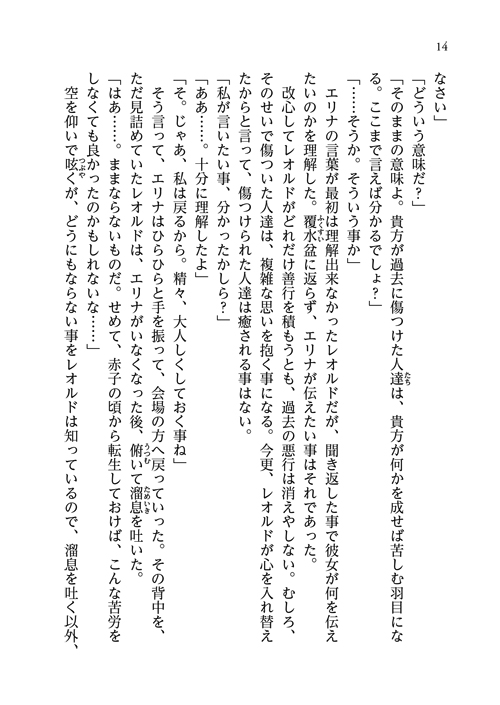 14
なさい」
「どういう意味だ？」
「そのままの意味よ。貴方が過去に傷つけた人達は、貴方が何かを成せば苦しむ羽目にな
る。ここまで言えば分かるでしょ？」
「……そうか。そういう事か」
　エリナの言葉が最初は理解出来なかったレオルドだが、聞き返した事で彼女が何を伝え
たいのかを理解した。覆水盆に返らず、エリナが伝えたい事はそれであった。
　改心してレオルドがどれだけ善行を積もうとも、過去の悪行は消えやしない。むしろ、
そのせいで傷ついた人達は、複雑な思いを抱く事になる。今更、レオルドが心を入れ替え
たからと言って、傷つけられた人達は癒される事はない。
「私が言いたい事、分かったかしら？」
「ああ……。十分に理解したよ」
「そ。じゃあ、私は戻るから。精々、大人しくしておく事ね」
　そう言って、エリナはひらひらと手を振って、会場の方へ戻っていった。その背中を、
ただ見詰めていたレオルドは、エリナがいなくなった後、俯いて溜息を吐いた。
「はあ……。ままならないものだ。せめて、赤子の頃から転生しておけば、こんな苦労を
しなくても良かったのかもしれないな……」
　空を仰いで呟くが、どうにもならない事をレオルドは知っているので、溜息を吐く以外、